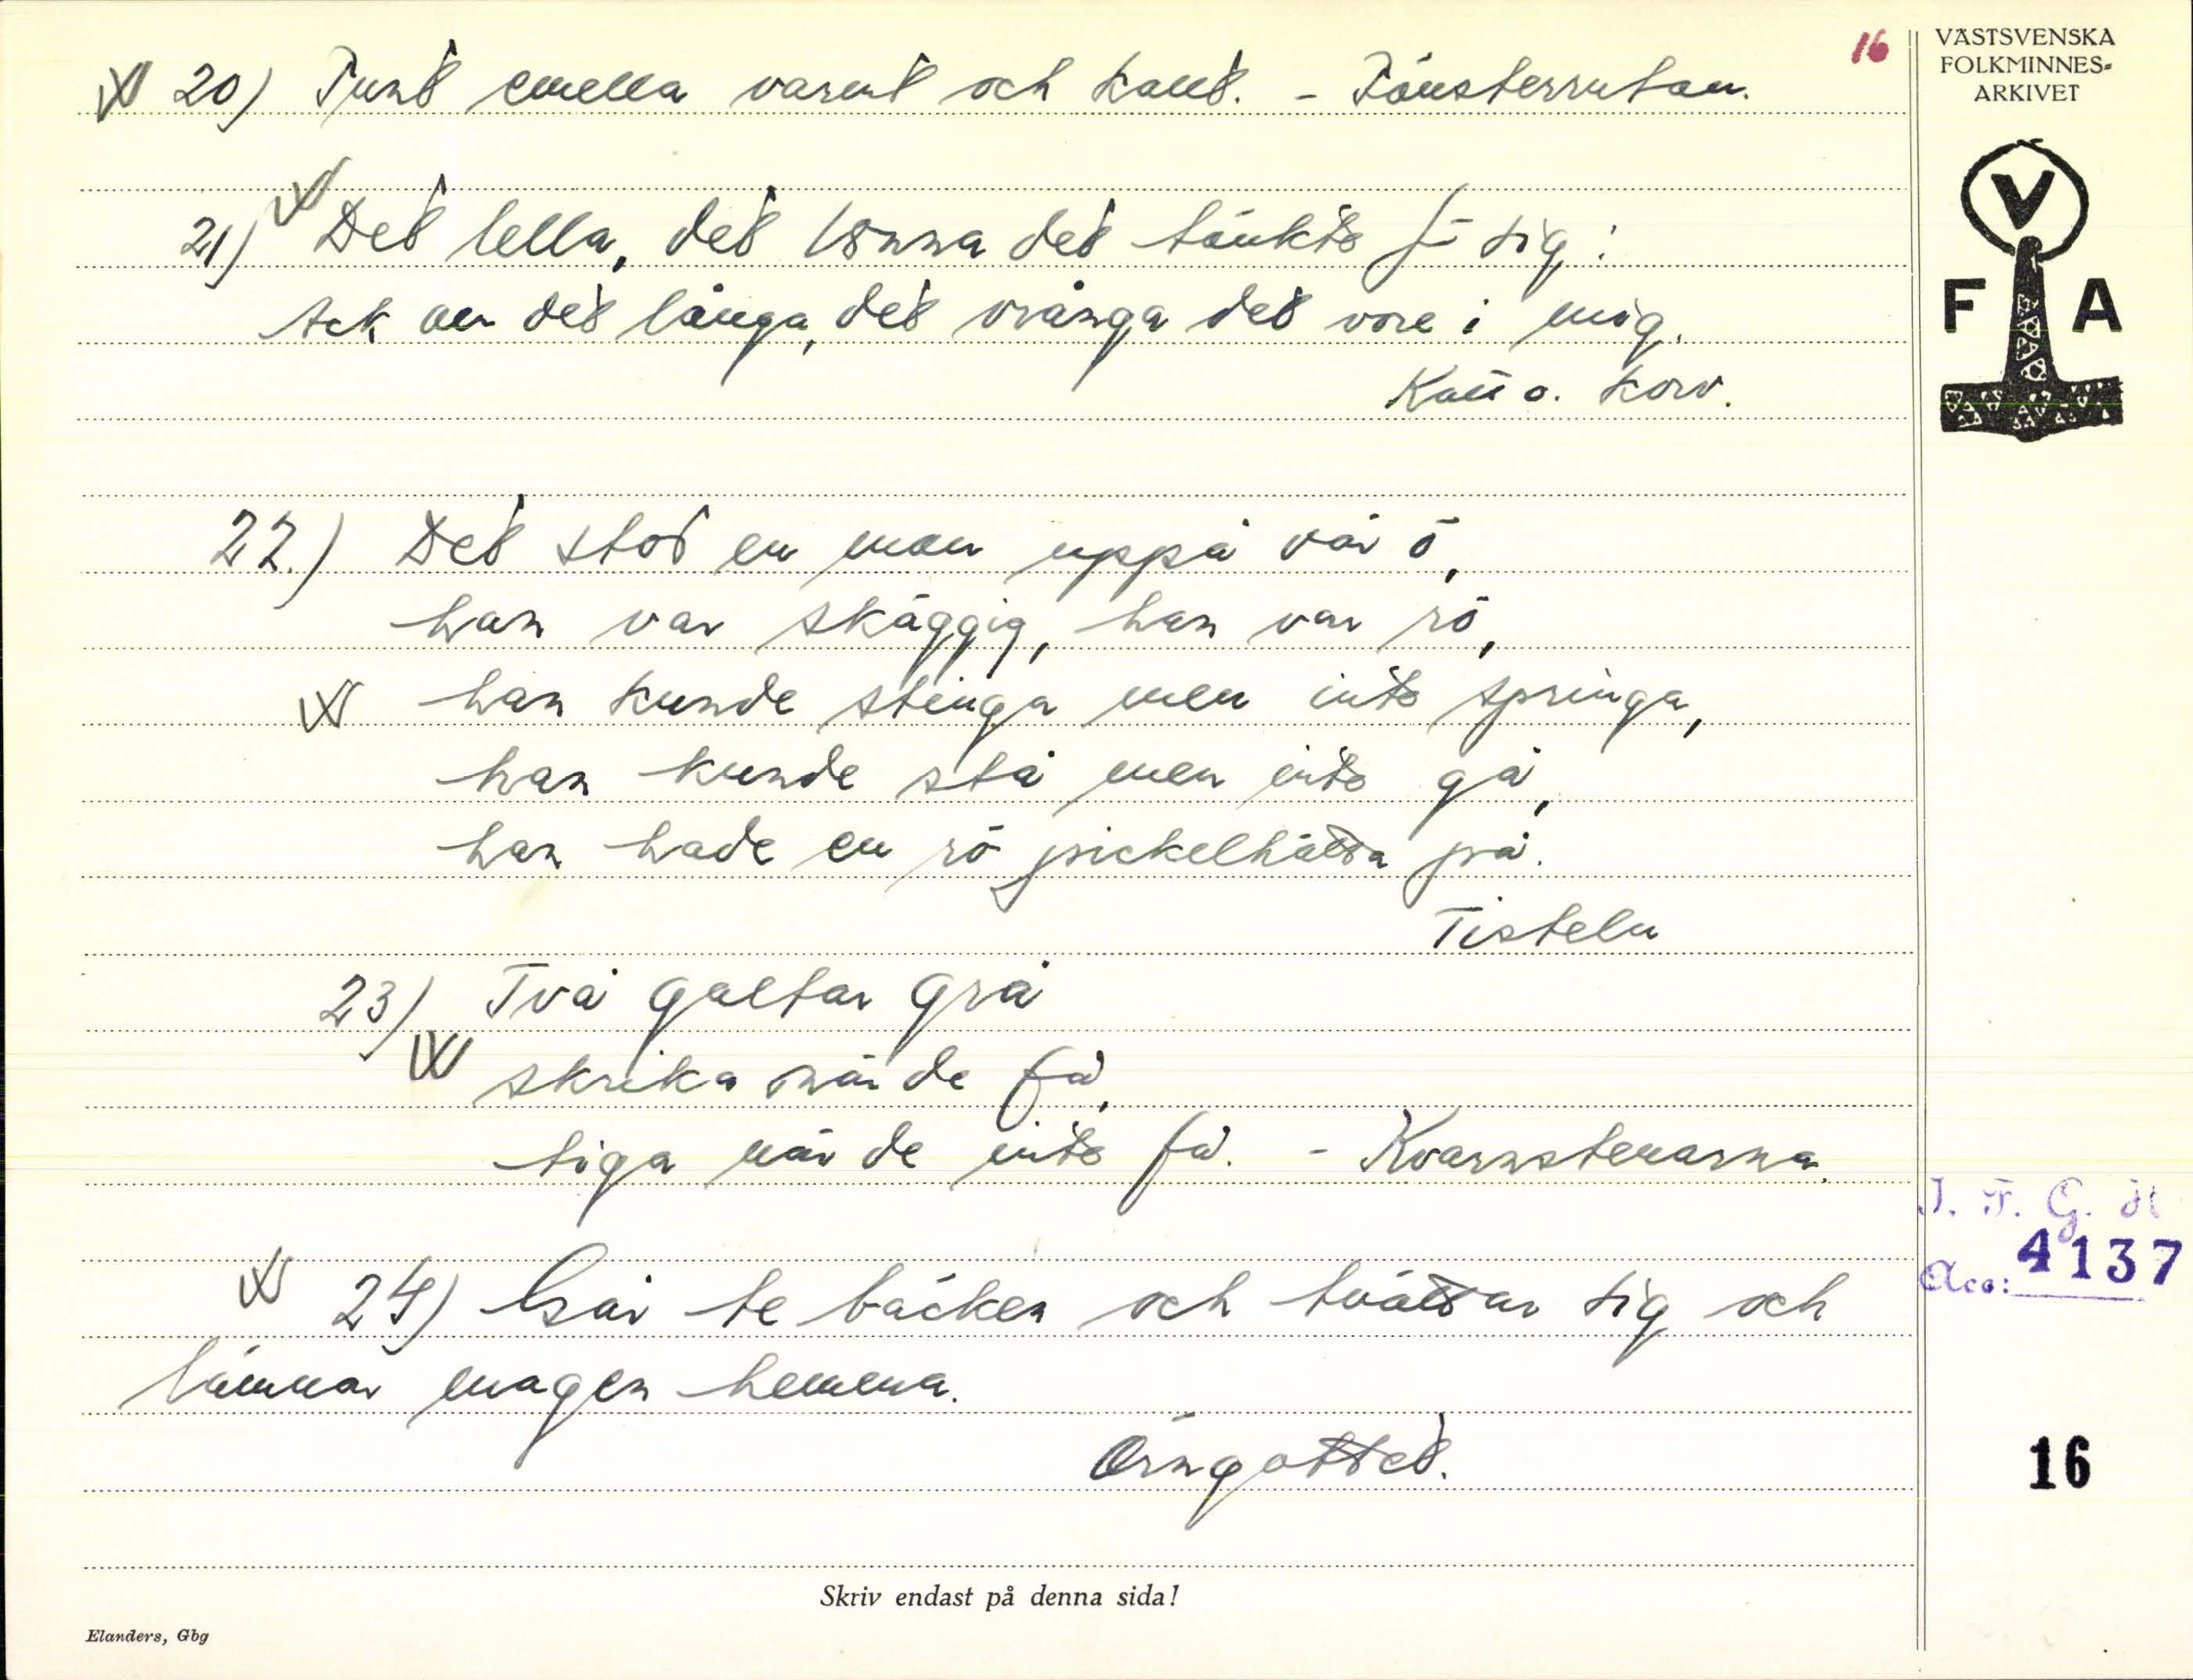 16
VÄSTSVENSKA
FOLKMINNES-
ARKIVET
V
F A
20) Tunt emella varmt och kallt. - Fönsterrutan.
21) Det lella, det lönna det tänkte för sig:
Ack om det långa, det vrånga det vore i mig.
Katt o. korv.
22.) Det stod en man uppå vår ö,
han var skäggig, han var rö,
han kunde stinga men inte springa,
han kunde stå men inte gå,
han hade en rö pickelhätta på.
Tisteln
23) Två galtar grå
skrika när de få,
tiga när de inte få. - Kvarnstenarna.
24) Går te bäcken och tvättar sig och
lämnar magen hemma.
Örngottet.
I. F. G. H
Acc: 4137
16
Skriv endast på denna sida!
Elanders, Gbg